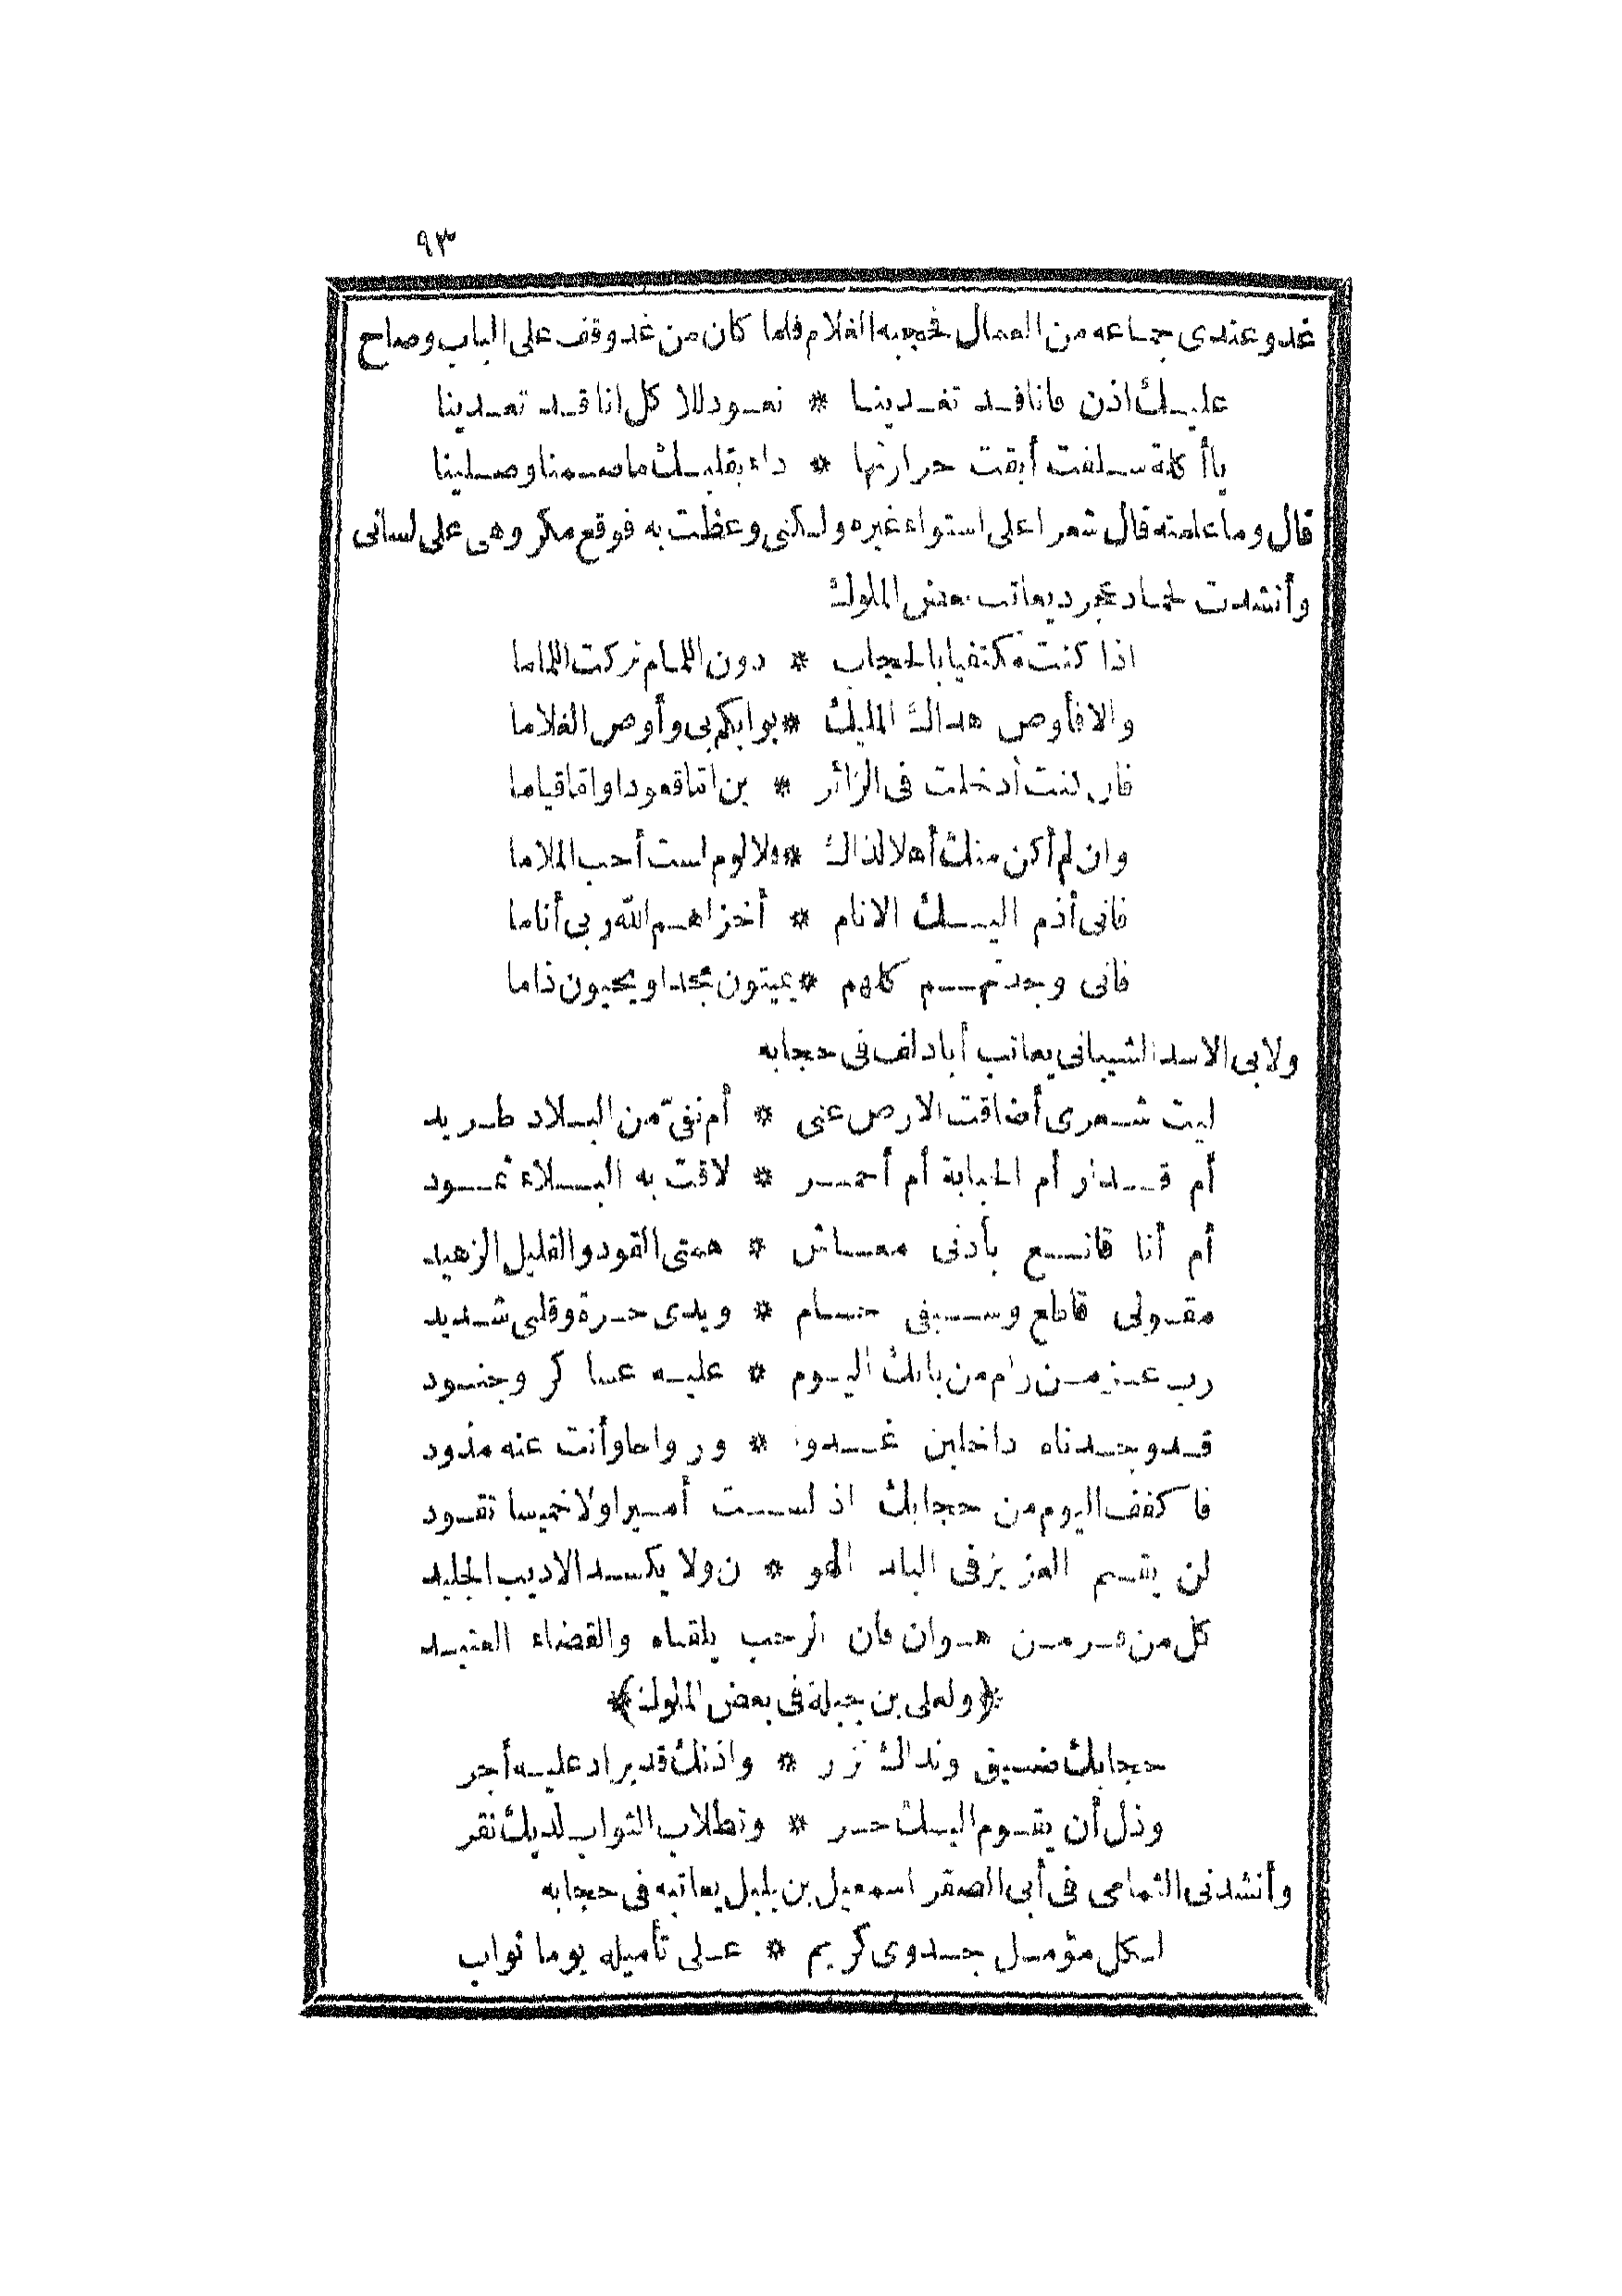 ٩٣
غد وعندى جماعه من العمال فحجبه الغلام فلما كان من غد وقف على الباب وصاح
عليك اذن فانا قد تغدينا * نعود للا كل انا قد تعدينا
يا أ كلة سلفت أبقت حرارتها * داء بقلبك ما صمنا وصلينا
قال وما علمته قال شعرا على استواء غيره ولكنى وعظت به فوقع مكر وهى على لسانى
وأنشدت لحماد عجرد يعاتب بعض الملوك
اذا كنت مكتفيا بالحجاب * دون اللمام تركت اللماما
والا فأوص هداك المليك * بوابكم بى وأوص الغلاما
فان كنت أدخلت فى الزائر * ين اما قعودا واما قياما
وان لم أكن منك أهلا لذاك * فلا لوم لست أحب الملاما
فانى أذم اليك الانام * أخزاهم الله ربى أناما
فانى وجدتهم كلهم * يميتون مجدا ويحيون ذاما
ولابى الاسد الشيبانى يعاتب أبا دلف فى حجابه
ليت شعرى أضاقت الارض عنى * أم نفىّ من البلاد طريد
أم قدار أم الحبابة أم أحمر * لاقت به البلاء ثمود
أم أنا قانع بأدنى معاش * همتى القود والقليل الزهيد
مقولى قاطع وسيفى حسام * ويدى حرة وقلبى شديد
رب عزيز من رام من بابك اليوم * عليه عسا كر وجنود
قد وجدناه داخلين غدوا * ورواحا وأنت عنه مذود
فا كفف اليوم من حجابك اذ لست أميرا ولا خميسا تقود
لن يقيم العزيز فى البلد الهو * ن ولا يكسد الاديب الجليد
كل من فر من هوان فان الرحب يلقاه والقضاء العتيد
﴿ولعلى بن جبلة فى بعض الملوك﴾
حجابك ضيق ونداك نزر * واذنك قد يراد عليه أجر
وذل أن يقوم اليك حر * وتطلاب الثواب لديك نقر
وأنشدنى الثمامى فى أبى الصقر اسمعيل بن بلبل يعاتبه فى حجابه
لكل مؤمل جدوى كريم * على تأميله يوما ثواب